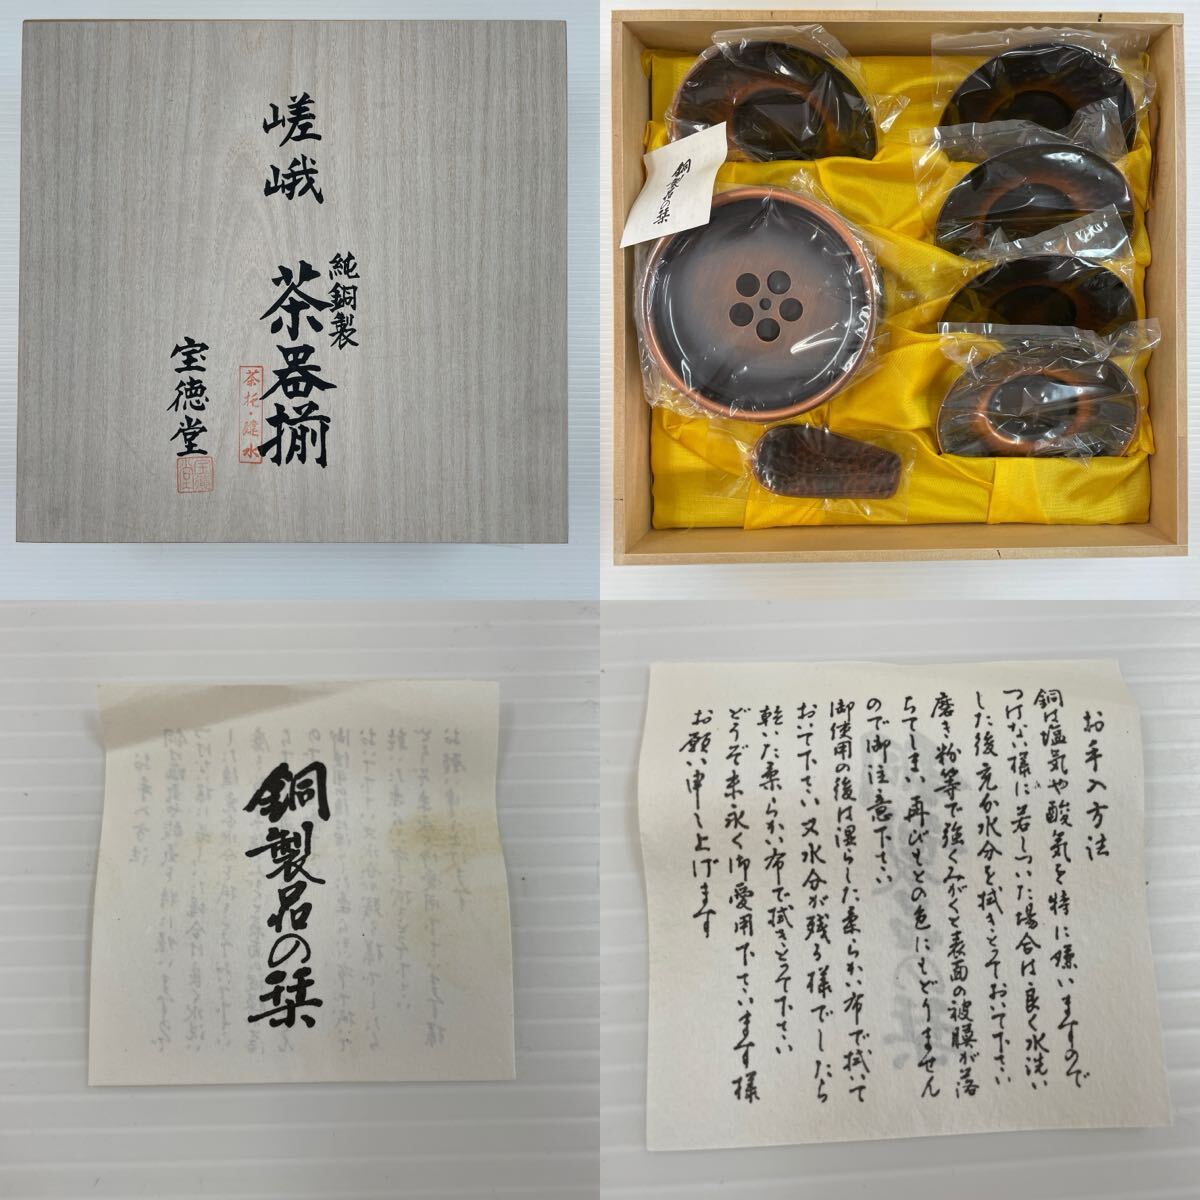 嵯峨
純銅製
茶器揃
茶托・建水
宝徳堂
銅製品の栞
銅製品の栞
お手入方法
銅は塩気や酸気を特に嫌いますので
つけない様に若しついた場合は良く水洗い
した後充分水分を拭きとっておいて下さい
磨き粉等で強くみがくと表面の被膜が落
ちてしまい再びもとの色にもどりません
ので御注意下さい
御使用の後は湿らした柔らかい布で拭いて
おいて下さい又水分が残る様でしたら
乾いた柔らかい布で拭きとって下さい
どうぞ末永く御愛用下さいます様
お願い申し上げます